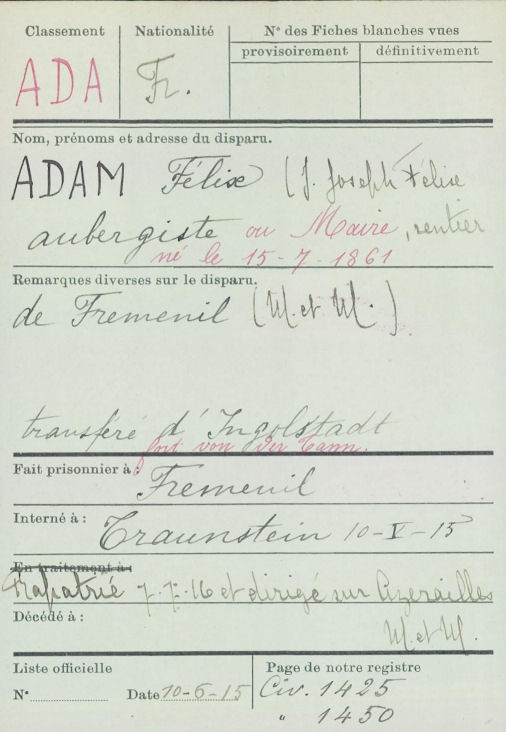 Classement
Nationalité
N° des Fiches blanches vues
provisoirement
définitivement
ADA
Fr.
Nom, prénoms et adresse du disparu.
ADAM Félix (J. Joseph Félix
aubergiste ou Maire, rentier
né le 15-7-1861
Remarques diverses sur le disparu.
de Fremenil (M. et M.)
transféré d'Ingolstadt
fort von der Tann.
Fait prisonnier à :
Fremenil
Interné à : Traunstein 10-V-15
En traitement à :
Rapatrié 7-7-16 et dirigé sur Azerailles
Décédé à :
M. et M.
Liste officielle
Page de notre registre
N° Date 10-6-15
Civ. 1425
" 1450